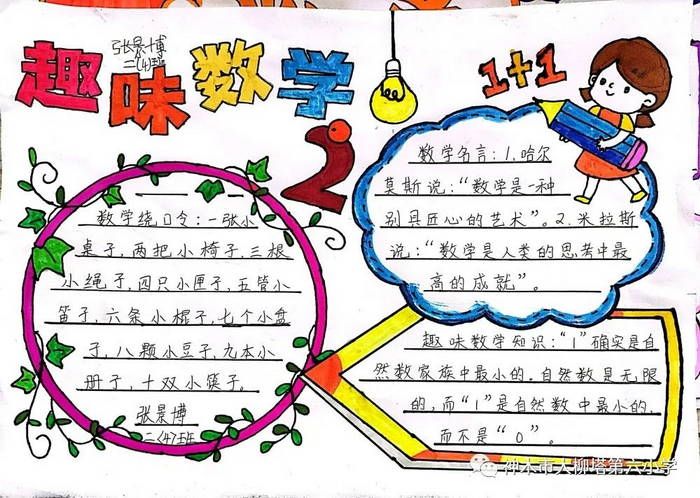 趣味数学
张景博
二(4)班
1+1
2
数学绕口令:一张小
桌子,两把小椅子,三根
小绳子,四只小匣子,五管小
笛子,六条小棍子,七个小盆
子,八颗小豆子,九本小
册子,十双小筷子。
张景博
二(4)班
数学名言:1.哈尔
莫斯说:“数学是一种
别具匠心的艺术”。2.米拉斯
说:“数学是人类的思考中最
高的成就”。
趣味数学知识:“1”确实是自
然数家族中最小的。自然数是无限
的,而“1”是自然数中最小的,
而不是“0”。
神木市大柳塔第六小学